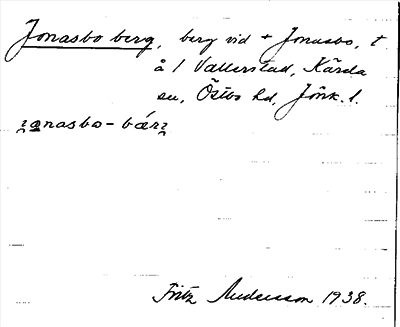 Jonasbo berg, berg vid + Jonasbo, t.
å 1 Vallerstad, Kärda
sn, Östbo hd, Jönk. l.
ɪonasbo-bærɪ
Fritz Andersson 1938.